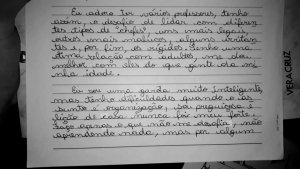 Eu adoro ter vários professores, tenho
assim, o desafio de lidar com diferen
tes tipos de "chefs", uns mais legais,
outros mais malucos, alguns
e, por fim, os rígidos. Tenho uma
ótima relação com adultos, me dou
melhor com eles do que gente da mi
nha idade.
Eu sou uma garota muito inteligente,
mas tenho dificuldades quando o as
sunto é organização, sou preguiçosa e
lição de casa nunca foi meu forte.
Faço apenas o que não me desafia, não
aprendendo nada, mas por algum
VERACRUZ